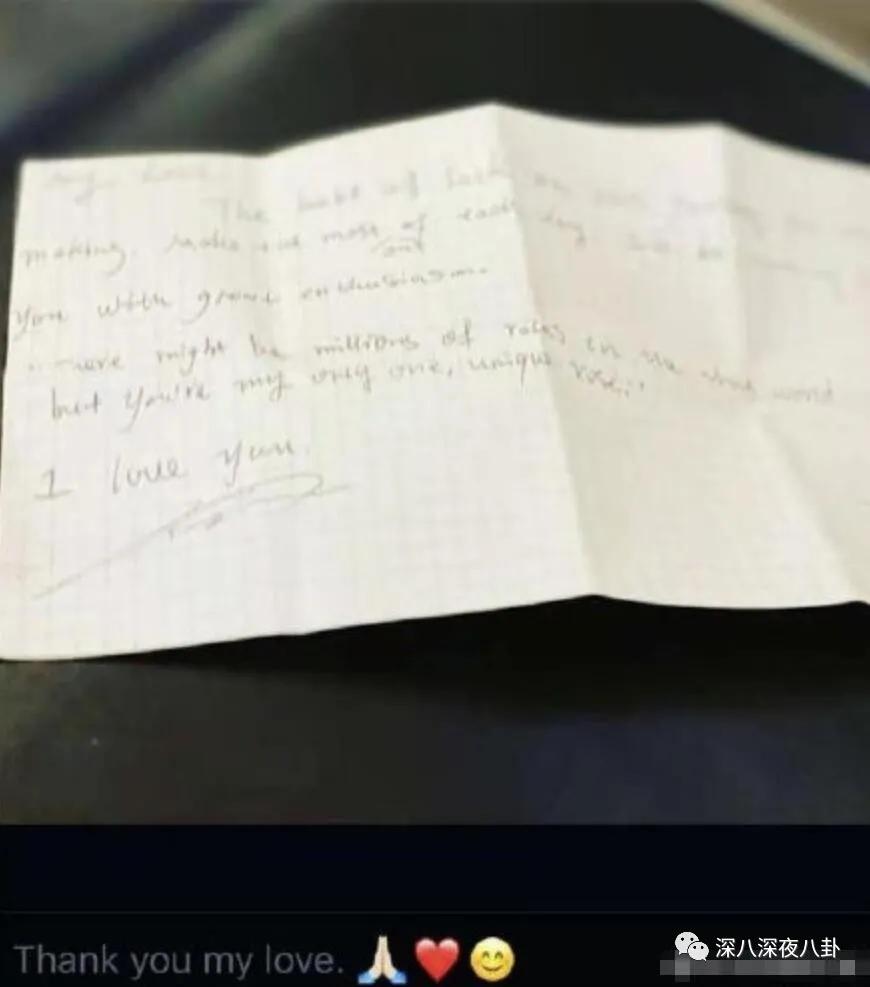 my love
The best of luck on
making. make the most of each day
out
you with great enthusiasm.
might be millions of roses in the world
but you're my only one, unique rose."
I love you.
Thank you my love. 🙏🏻❤️😊
深八深夜八卦